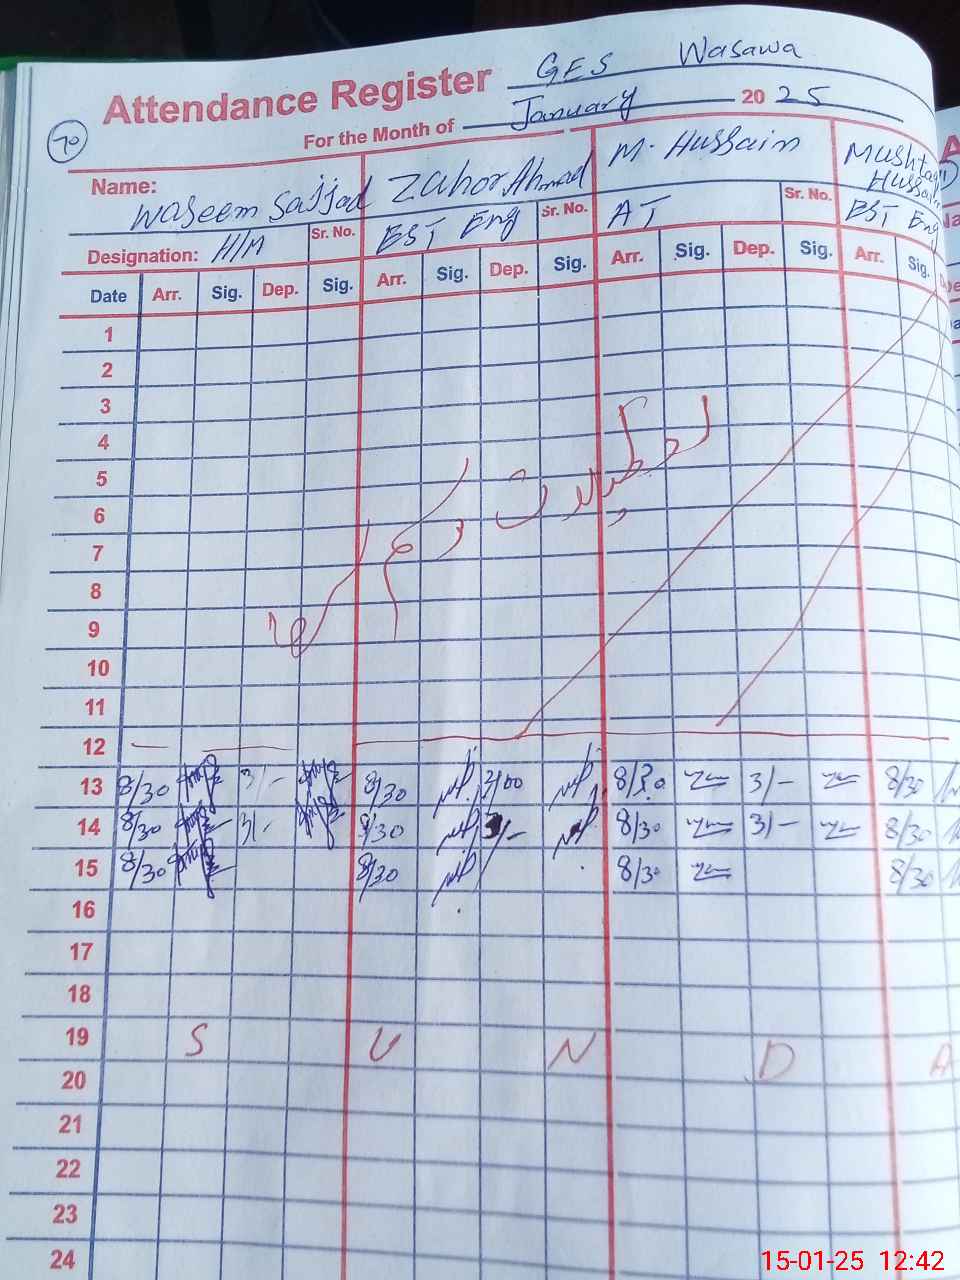 Attendance Register GES Wasawa
For the Month of January 2025
70
Name: Waseem Sajjad Zahor Ahmad M. Hussain Mushtaq Hussain
Designation: H/M Sr. No. EST Eng Sr. No. AT Sr. No. EST Eng
Date Arr. Sig. Dep. Sig. Arr. Sig. Dep. Sig. Arr. Sig. Dep. Sig. Arr. Sig.
1
2
3
4
5
6
7
8
9
10
11
12
13 8/30 3/- 8/30 3/00 8/30 3/- 8/30
14 8/30 3/- 8/30 3/- 8/30 3/- 8/30
15 8/30 8/30 8/30 8/30
16
17
18
19 S U N D A
20
21
22
23
24
15-01-25 12:42